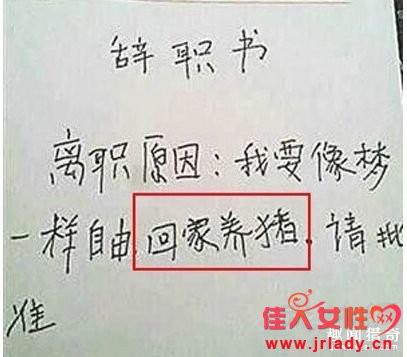 辞职书
离职原因：我要像梦
一样自由，回家养猪。请批
准
佳人女性网
趣闻猎奇
www.jrlady.cn